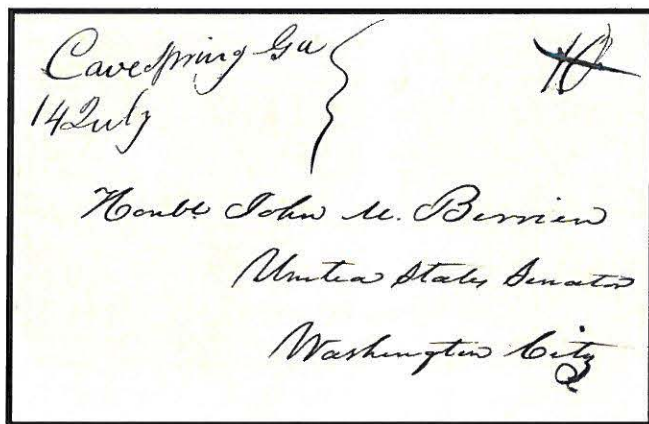 Cave Spring Ga
10
14 July
Honble John M. Berrien
United States Senator
Washington City